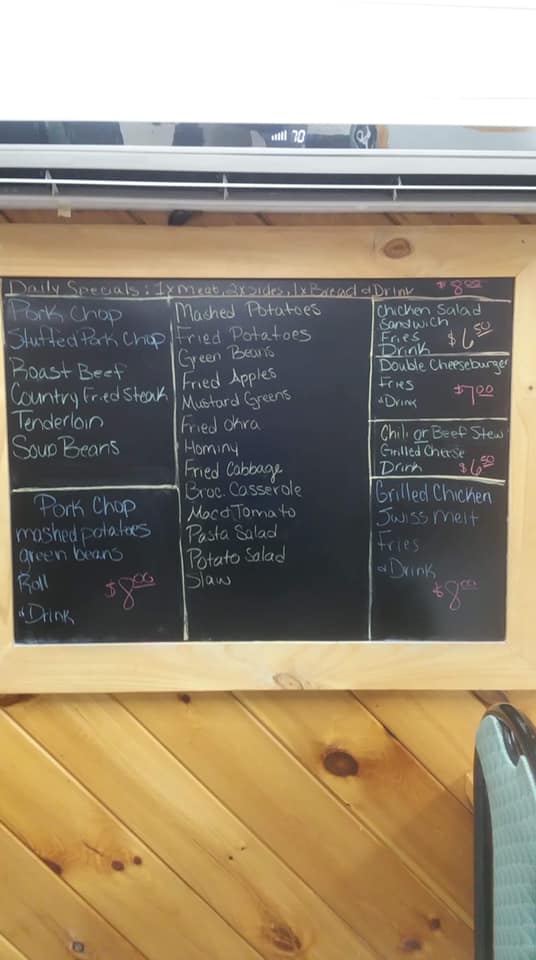 70
Daily Specials: 1x Meat, 2x Sides, 1x Bread & Drink $8.00
Pork Chop
Stuffed Pork Chop
Roast Beef
Country Fried Steak
Tenderloin
Soup Beans
Pork Chop
mashed potatoes
green beans
Roll $8.00
& Drink
Mashed Potatoes
Fried Potatoes
Green Beans
Fried Apples
Mustard Greens
Fried Okra
Hominy
Fried Cabbage
Broc. Casserole
Mac & Tomato
Pasta Salad
Potato Salad
Slaw
Chicken Salad
Sandwich
Fries $6.50
Drink
Double Cheeseburger
Fries $7.00
& Drink
Chili or Beef Stew
Grilled Cheese
Drink $6.50
Grilled Chicken
Swiss Melt
Fries
& Drink
$8.00